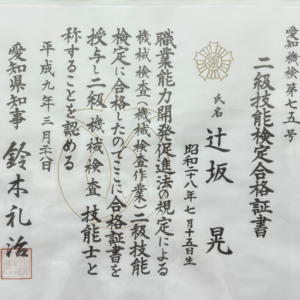 愛知機検第七五号
二級技能検定合格証書
氏名 辻坂 晃
昭和二十八年七月十五日生
職業能力開発促進法の規定による
機械検査(機械検査作業)二級技能
検定に合格したのでここに合格証書を
授与し二級機械検査技能士と
称することを認める
平成九年三月二八日
愛知県知事 鈴木礼治